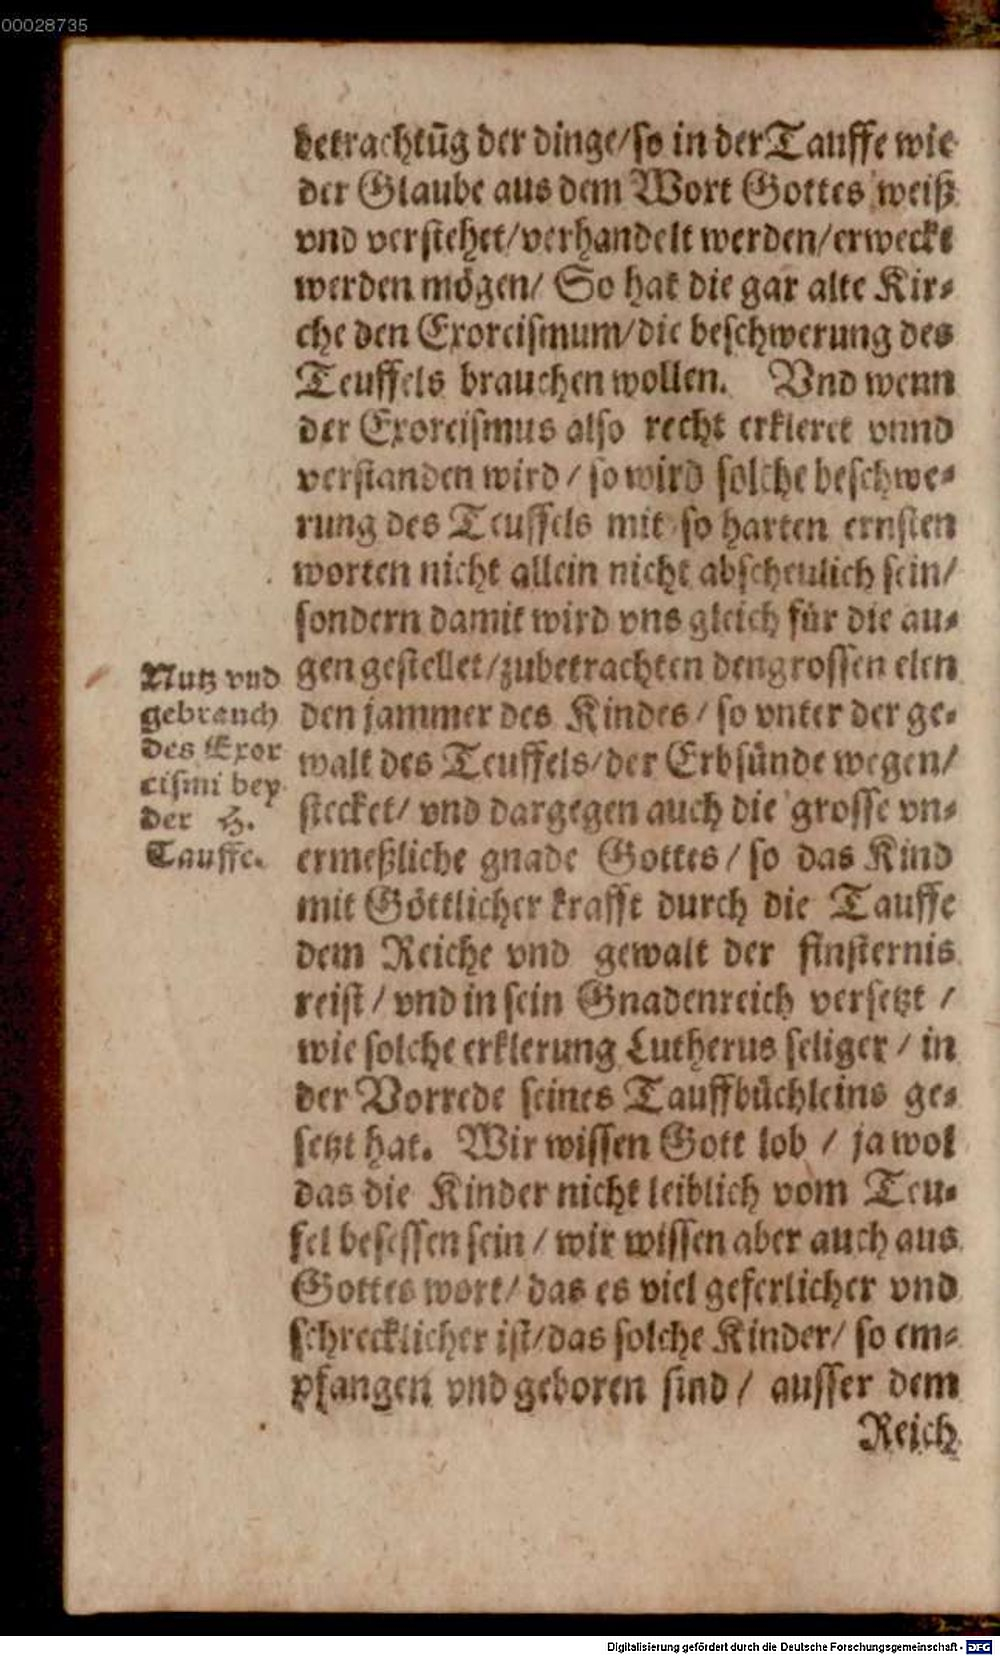 00028735
betrachtũg der dinge/so in der Tauffe wie
der Glaube aus dem Wort Gottes weiß
vnd verstehet/verhandelt werden/erweckt
werden mögen/ So hat die gar alte Kir⸗
che den Exorcismum/die beschwerung des
Teuffels brauchen wollen. Vnd wenn
der Exorcismus also recht erkleret vnnd
verstanden wird / so wird solche beschwe⸗
rung des Teuffels mit so harten ernsten
worten nicht allein nicht abscheulich sein/
sondern damit wird vns gleich für die au⸗
gen gestellet/zubetrachten den grossen elen
den jammer des Kindes / so vnter der ge⸗
walt des Teuffels/der Erbsünde wegen/
stecket/ vnd dargegen auch die grosse vn⸗
ermeßliche gnade Gottes / so das Kind
mit Göttlicher krafft durch die Tauffe
dem Reiche vnd gewalt der finsternis
reist / vnd in sein Gnadenreich versetzt /
wie solche erklerung Lutherus seliger / in
der Vorrede seines Tauffbüchleins ge⸗
setzt hat. Wir wissen Gott lob / ja wol
das die Kinder nicht leiblich vom Teu⸗
fel besessen sein / wir wissen aber auch aus
Gottes wort/ das es viel geferlicher vnd
schrecklicher ist/das solche Kinder/ so em⸗
pfangen vnd geboren sind / ausser dem
Reich
Nutz vnd
gebrauch
des Exor
cismi bey
der H.
Tauffe.
Digitalisierung gefördert durch die Deutsche Forschungsgemeinschaft - DFG